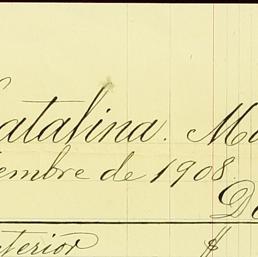 Catalina. M
iembre de 1908.
D
nterior $